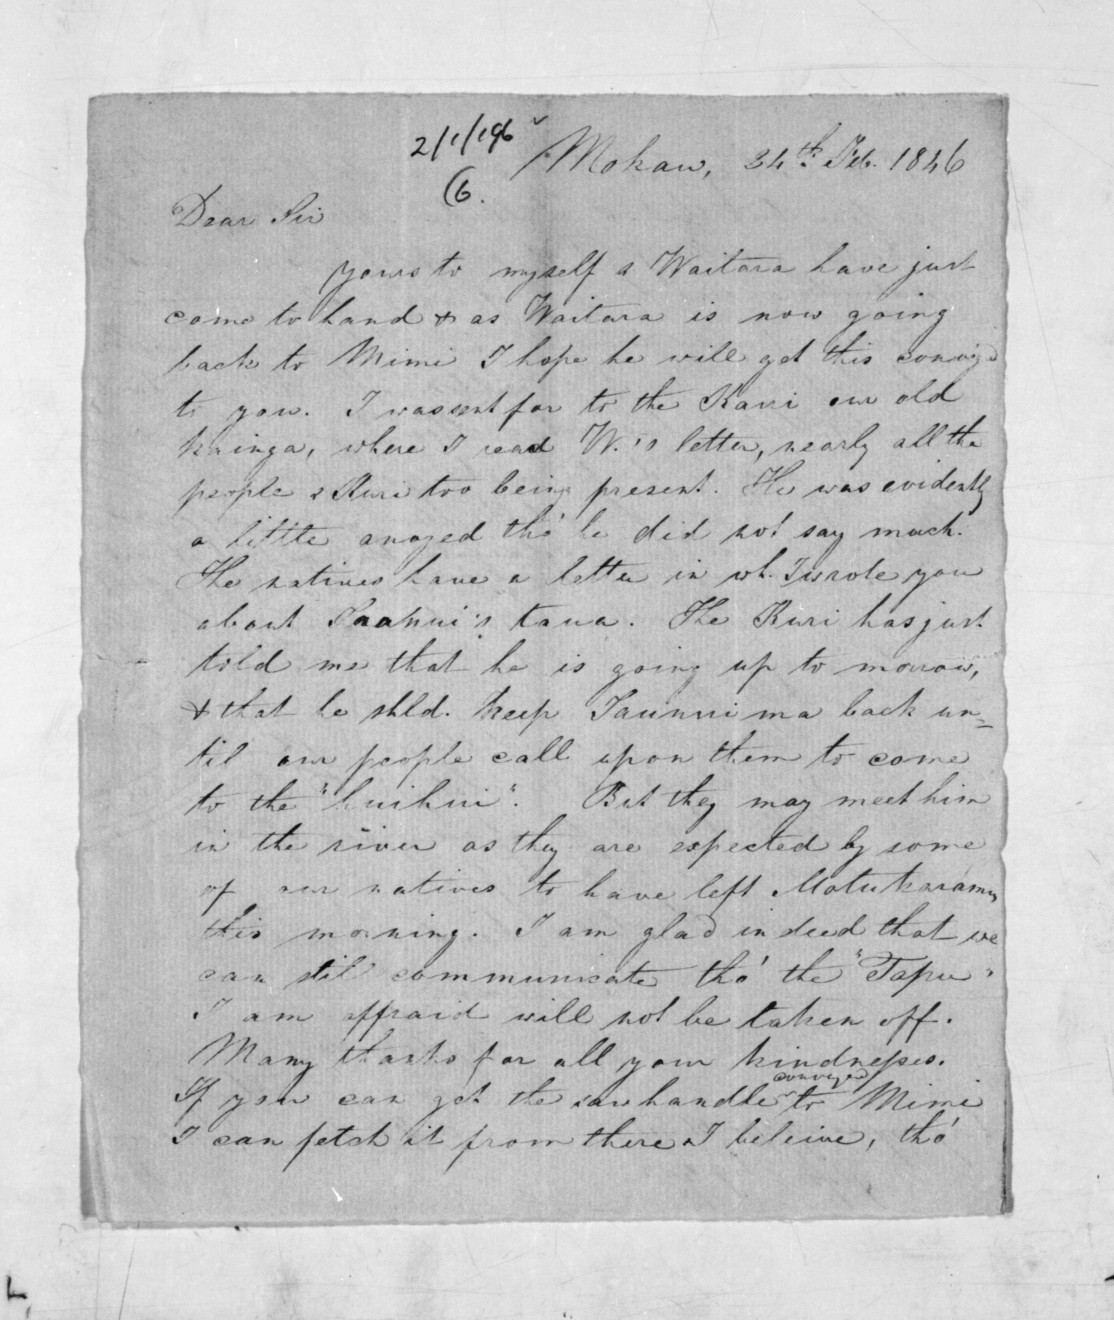 2/1/196
(6.
Mokau, 24th. Feb. 1846
Dear Sir
yours to myself & Waitara have just
come to hand & as Waitara is now going
back to Mimi I hope he will get this convey'd
to you. I was sent for to the Kauri our old
kainga, where I read W.'s letter, nearly all the
people & Kuri too being present. He was evidently
a little anoyed tho' he did not say much.
The natives have a letter in wh. I wrote you
about Taonui's taua. The Kuri has just
told me that he is going up to morrow,
& that he shld. keep Taunuima back un=
til our people call upon them to come
to the "huihui". But they may meet him
in the river as they are expected by some
of our natives to have left Motukaramu
this morning. I am glad indeed that we
can still communicate tho' the "Tapu"
I am affraid will not be taken off.
Many thanks for all your kindnesses.
If you can get the saw handle conveyed to Mimi
I can fetch it from there I beleive, tho'